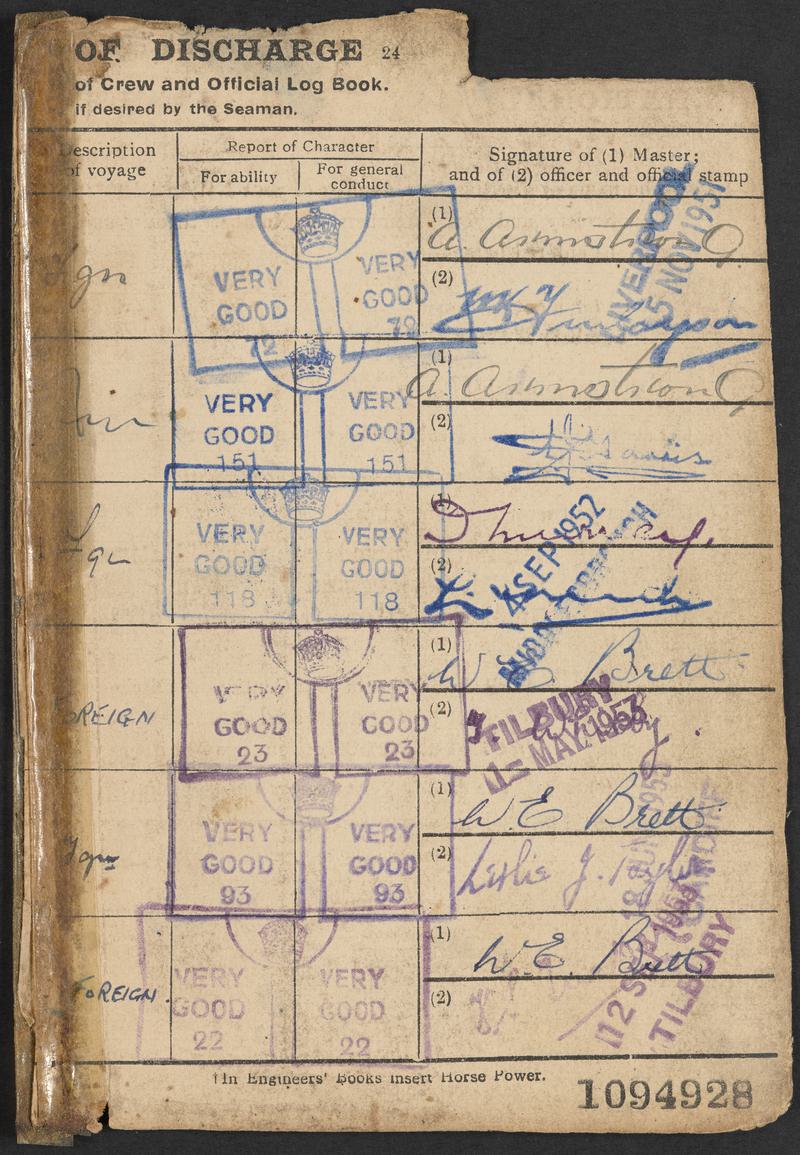 OF DISCHARGE 24
of Crew and Official Log Book.
if desired by the Seaman.
Description of voyage
Report of Character
For ability
For general conduct
Signature of (1) Master;
and of (2) officer and official stamp
Fgn
VERY GOOD 72
VERY GOOD 72
(1) A. Armstrong
(2)
LIVERPOOL
5 NOV 1951
VERY GOOD 151
VERY GOOD 151
(1) A. Armstrong
(2)
Fgn
VERY GOOD 118
VERY GOOD 118
(1)
(2)
4 SEP 1952
MIDDLESBROUGH
FOREIGN
VERY GOOD 23
VERY GOOD 23
(1) W E Brett
(2)
TILBURY
1 - MAY 1953
Fgn
VERY GOOD 93
VERY GOOD 93
(1) W E Brett
(2) Leslie J.
18 JUN 1953
FOREIGN.
VERY GOOD 22
VERY GOOD 22
(1) W. E. Brett
(2)
12 SEP 1953
TILBURY
†In Engineers' Books insert Horse Power.
1094928